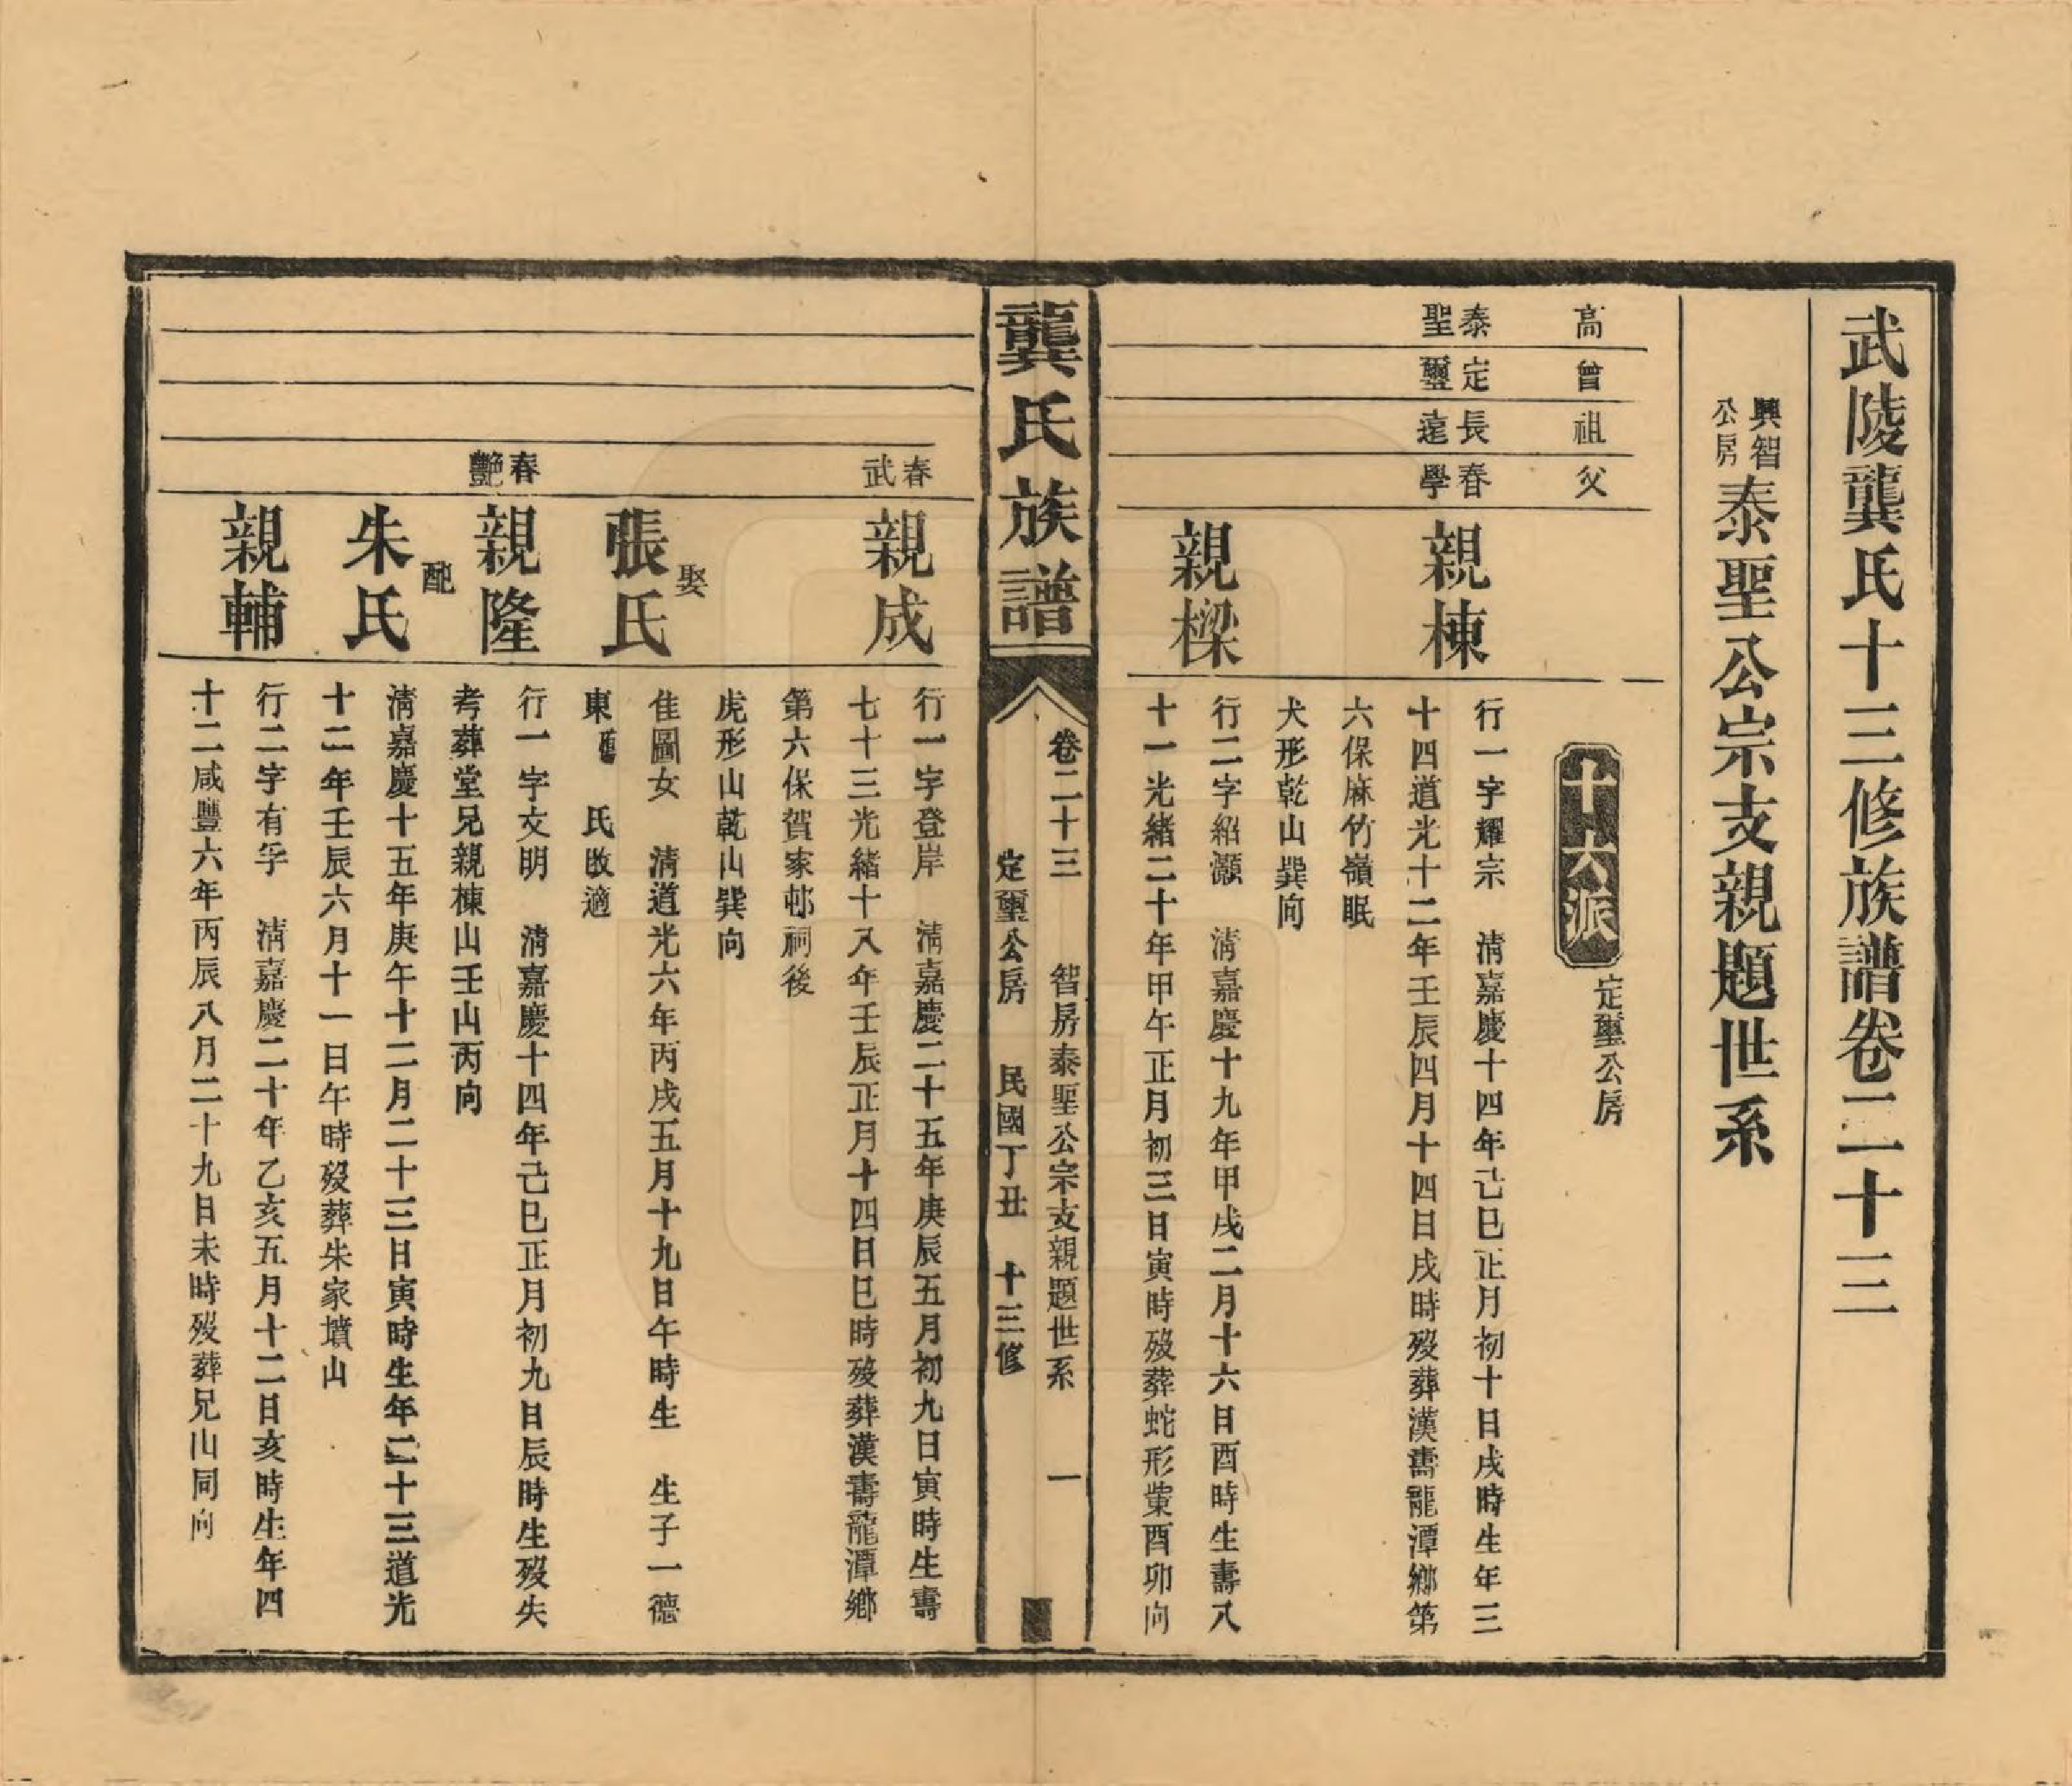 武陵龔氏十三修族譜卷二十三
興智公房泰聖公宗支親題世系
高
曾
祖
父
十六派
定璽公房
泰聖
定璽
長遠
春學
親棟
行一字耀宗　清嘉慶十四年己巳正月初十日戌時生年二
十四道光十二年壬辰四月十四日戌時歿葬漢壽龍潭鄉第
六保麻竹嶺眠
犬形乾山巽向
親樑
行二字紹灝　清嘉慶十九年甲戌二月十六日酉時生壽八
十一光緒二十年甲午正月初三日寅時歿葬蛇形業酉卯向
龔氏族譜
卷二十三　智房泰聖公宗支親題世系　一
定璽公房　民國丁丑　十三修
春武
親成
行一字登岸　清嘉慶二十五年庚辰五月初九日寅時生壽
七十三光緒十八年壬辰正月十四日巳時歿葬漢壽龍潭鄉
第六保賀家邨祠後
虎形山乾山巽向
娶
張氏
佳圖女　清道光六年丙戌五月十九日午時生　生子一德
東　氏改適
春艷
親隆
行一字文明　清嘉慶十四年己巳正月初九日辰時生歿失
考葬堂兄親棟山壬山丙向
配
朱氏
清嘉慶十五年庚午十二月二十三日寅時生年二十三道光
十二年壬辰六月十一日午時歿葬朱家墳山
親輔
行二字有孚　清嘉慶二十年乙亥五月十二日亥時生年四
十二咸豐六年丙辰八月二十九日未時歿葬兄山同向